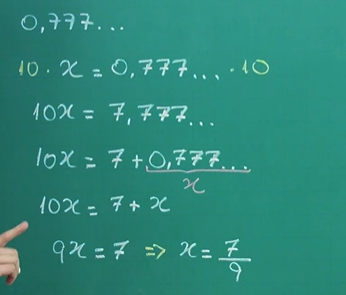 0,777...
10 · x = 0,777... · 10
10x = 7,777...
10x = 7 + 0,777...
x
10x = 7 + x
9x = 7 => x = 7/9